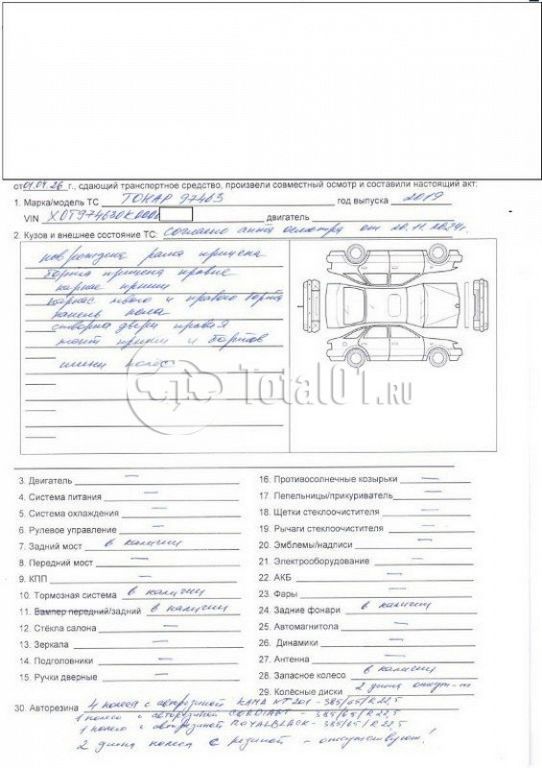 от 01.04.26 г., сдающий транспортное средство, произвели совместный осмотр и составили настоящий акт:
1. Марка/модель ТС ТОНАР 97463 год выпуска 2019
VIN X0T974630K0000 двигатель
2. Кузов и внешнее состояние ТС: Согласно акта осмотра от 20.11.2024г.
повреждена рама прицепа
борта прицепа правые
каркас крыши
каркас левого и правого борта
панель пола
створка двери правая
тент крыши и бортов
шины колес
Total01.ru
3. Двигатель —
4. Система питания —
5. Система охлаждения —
6. Рулевое управление —
7. Задний мост в наличии
8. Передний мост —
9. КПП —
10. Тормозная система в наличии
11. Бампер передний/задний в наличии
12. Стёкла салона —
13. Зеркала —
14. Подголовники —
15. Ручки дверные —
16. Противосолнечные козырьки —
17. Пепельницы/прикуриватель —
18. Щетки стеклоочистителя —
19. Рычаги стеклоочистителя —
20. Эмблемы/надписи —
21. Электрооборудование —
22. АКБ —
23. Фары —
24. Задние фонари в наличии
25. Автомагнитола —
26. Динамики —
27. Антенна —
28. Запасное колесо в наличии
29. Колёсные диски 2 диска отсут-т
30. Авторезина 4 колеса с авторезиной KAMA NT201 - 385/65/R22,5
1 колесо с авторезиной CORDIANT - 385/65/R22,5
1 колесо с авторезиной ROYALBLACK - 385/65/R22,5
2 диска колеса с резиной - отсутствуют!